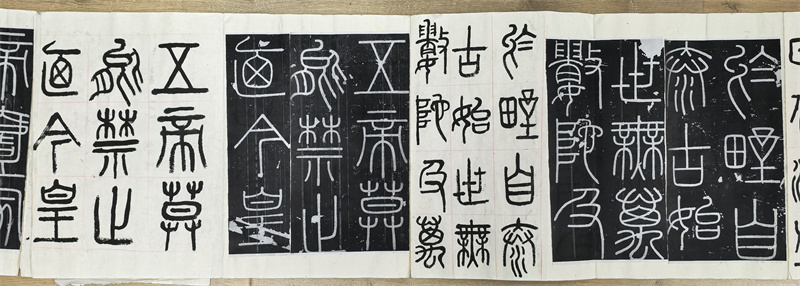 於野自
泰古始
世無萬
數陀及
於野自泰
古始世無
數陀及萬
五帝莫
能禁止
廼今皇
五帝莫
能禁止
廼今皇
帝壹家